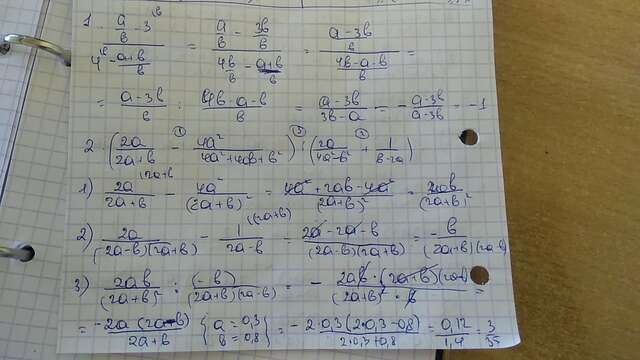 1. (a/b - 3^{(b}) / (4^{(b} - (a+b)/b) = (a/b - 3b/b) / (4b/b - (a+b)/b) = ((a-3b)/b) / ((4b-a-b)/b) =
= (a-3b)/b : (4b-a-b)/b = (a-3b)/(3b-a) = - (a-3b)/(a-3b) = -1
2. (2a/(2a+b) -^{①} 4a²/(4a²+4ab+b²)) :^{③} (2a/(4a²-b²) +^{②} 1/(b-2a))
1) 2a^{(2a+b}/(2a+b) - 4a²/(2a+b)² = (4a²+2ab-4a²)/(2a+b)² = 2ab/(2a+b)²
2) 2a/((2a-b)(2a+b)) - 1^{(2a+b)}/(2a-b) = (2a-2a-b)/((2a-b)(2a+b)) = -b/((2a+b)(2a-b))
3) 2ab/(2a+b)² : (-b)/((2a+b)(2a-b)) = - (2ab·(2a+b)(2a-b))/((2a+b)²·b) =
= -2a(2a-b)/(2a+b) {a=0,3 b=0,8} = - 2·0,3(2·0,3-0,8)/(2·0,3+0,8) = 0,12/1,4 = 3/35